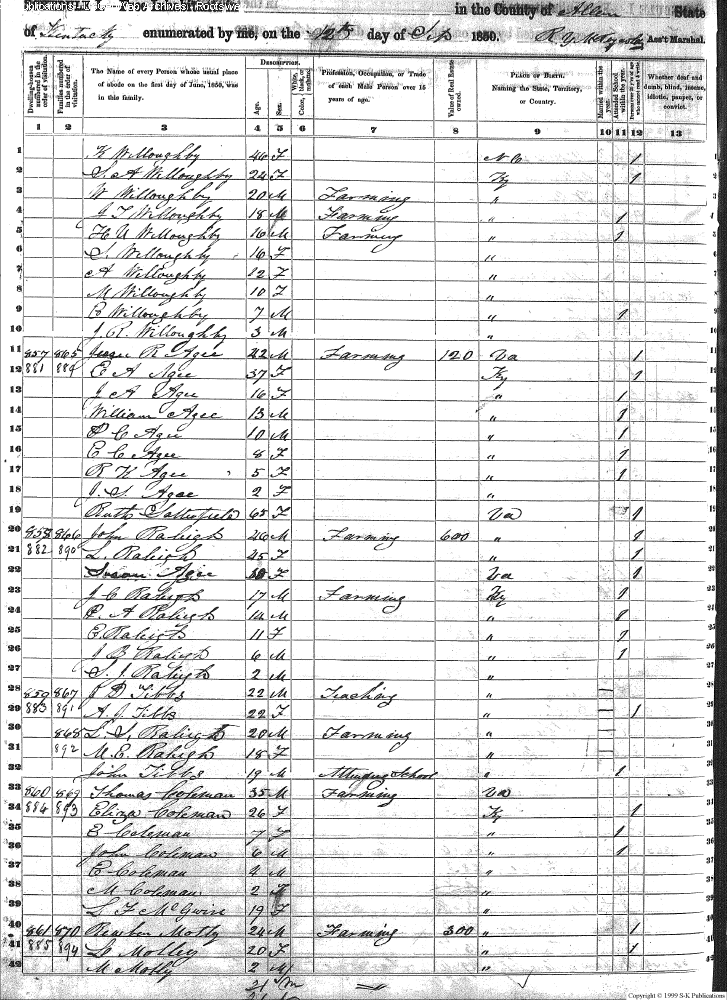 in the County of Allen State
of Kentucky enumerated by me, on the 12th day of Sep 1850. Ass't Marshal.
Dwelling-houses numbered in the order of visitation.
Families numbered in the order of visitation.
The Name of every Person whose usual place of abode on the first day of June, 1850, was in this family.
DESCRIPTION.
Age.
Sex.
Color, White, black, or mulatto.
Profession, Occupation, or Trade of each Male Person over 15 years of age.
Value of Real Estate owned.
PLACE OF BIRTH. Naming the State, Territory, or Country.
Married within the year.
Attended School within the year.
Whether deaf and dumb, blind, insane, idiotic, pauper, or convict.
1 2 3 4 5 6 7 8 9 10 11 12 13
1 K Willoughby 46 F N C 1
2 S A Willoughby 24 F Ky 1
3 W Willoughby 20 M Farming "
4 J T Willoughby 18 M Farming " 1
5 H U Willoughby 16 M Farming " 1
6 S. Willoughby 16 F "
7 A Willoughby 12 F "
8 M Willoughby 10 F "
9 E Willoughby 7 M " 1
10 J R. Willoughby 3 M "
11 857 865 R Agee 42 M Farming 120 Va 1
12 881 889 E A Agee 37 F Ky 1
13 J A Agee 16 F " 1
14 William Agee 13 M " 1
15 P C Agee 10 M " 1
16 E C Agee 8 F " 1
17 R K Agee 5 F " 1
18 J. S. Agee 2 F "
19 Ruth Satterfield 65 F Va 1
20 858 866 John Raleigh 46 M Farming 600 " 1
21 882 890 L. Raleigh 45 F " 1
22 Agee F Va 1
23 J C Raleigh 17 M Farming Ky 1
24 A Raleigh 14 M " 1
25 E Raleigh 11 F " 1
26 J B Raleigh 6 M " 1
27 S. J. Raleigh 2 M "
28 859 867 J D Tibbs 22 M Teaching "
29 883 891 A J. Tibbs 22 F " 1
30 868 L. S. Raleigh 20 M Farming "
31 892 M. E. Raleigh 18 F "
32 John Tibbs 19 M Attending School " 1
33 860 869 Thomas Coleman 35 M Farming Va
34 884 893 Eliza Coleman 26 F Ky 1
35 E Coleman 7 F " 1
36 John Coleman 6 M " 1
37 E Coleman 4 M "
38 M Coleman 2 "
39 L F McGwire 19 F "
40 861 870 Reuben Motty 24 M Farming 300 " 1
41 885 894 L Motley 20 F " 1
42 M Motly 2 M "
Copyright © 1999 S-K Publications